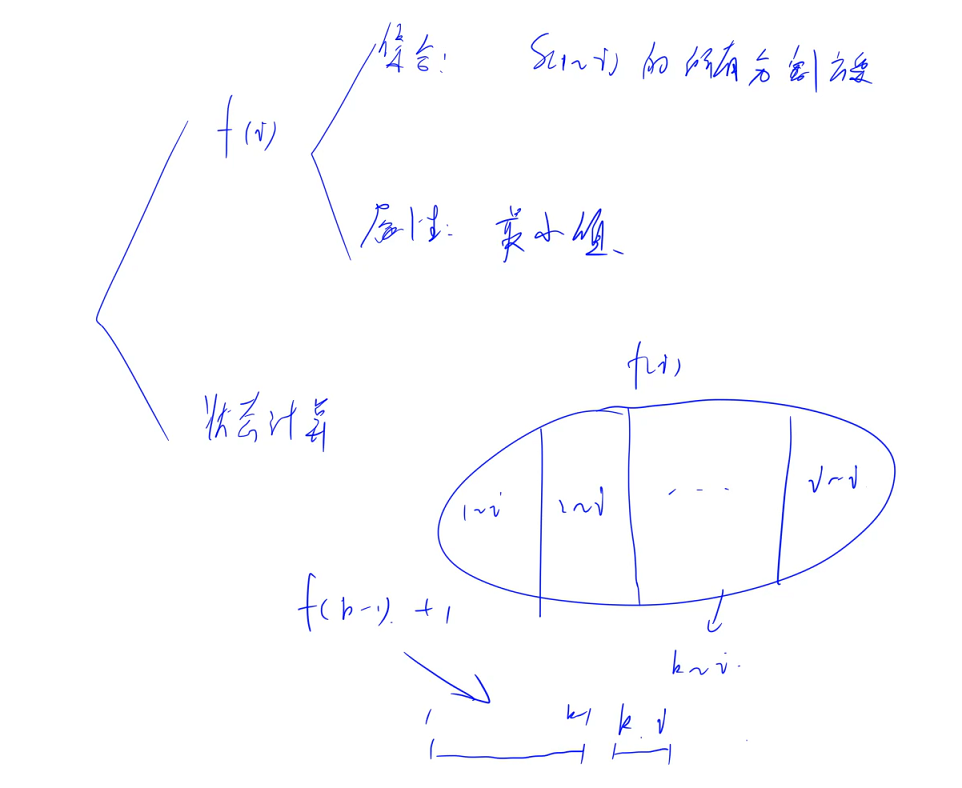 集合: S(1~i) 的所有分割方案
f(i)
属性: 最小值、
f(i)
状态计算
1~i 2~i ... i~i
f(k-1) + 1
k~i.
1 k-1 k i